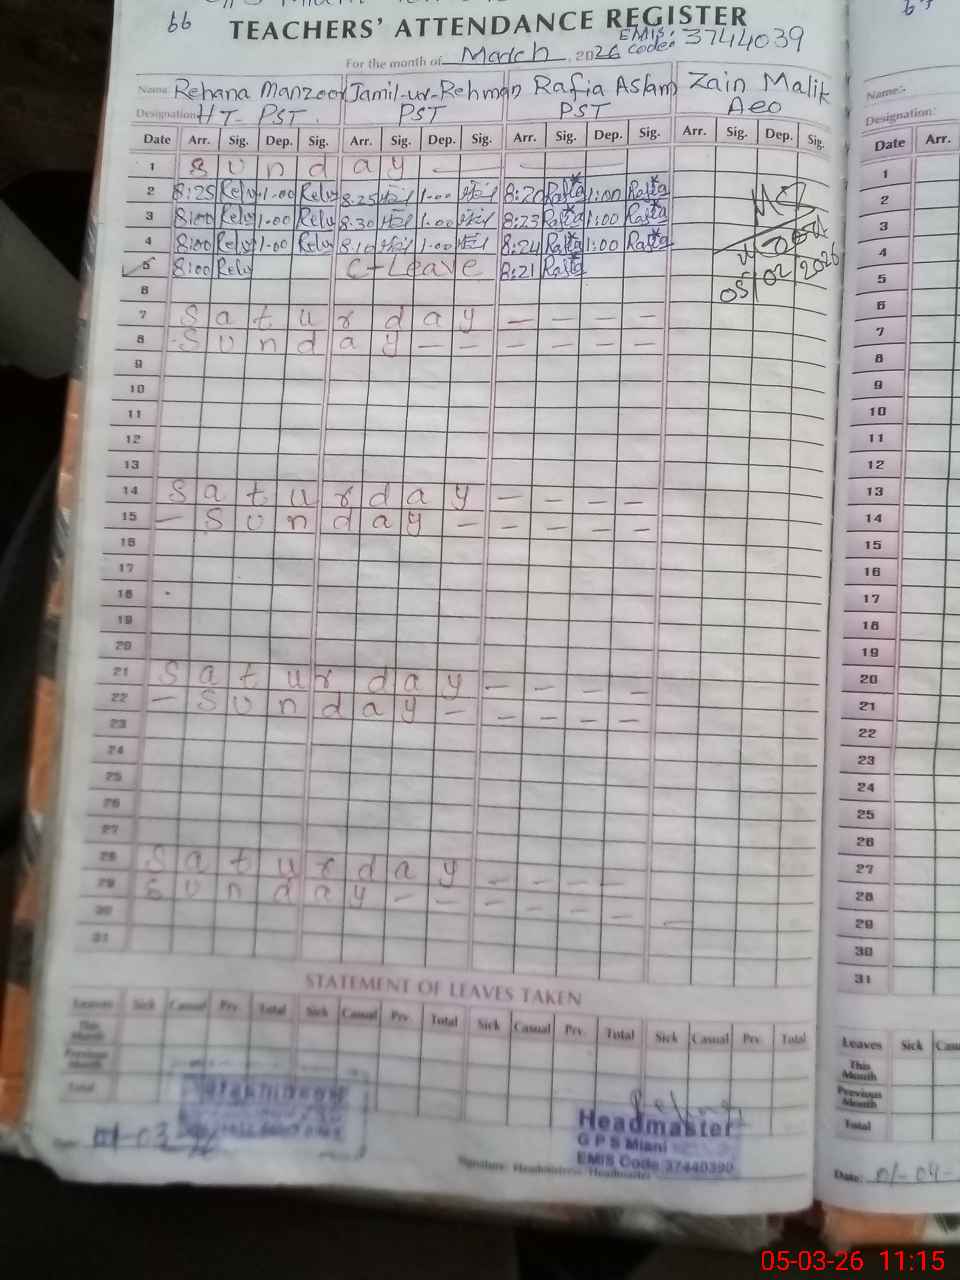 66
TEACHERS' ATTENDANCE REGISTER
EMIS: code: 3744039
For the month of March, 2026
Name: Rehana Manzoor Jamil-ur-Rehman Rafia Aslam Zain Malik
Designation HT- PST. PST PST Aeo
Date Arr. Sig. Dep. Sig. Arr. Sig. Dep. Sig. Arr. Sig. Dep. Sig. Arr. Sig. Dep. Sig.
1 Sunday
2 8:25 1-00 8.25 1-00 8:20 Rafia 1:00 Rafia
3 8:00 1-00 8.30 1.00 8:23 Rafia 1:00 Rafia
4 8:00 1-00 8.10 1-00 8:24 Rafia 1:00 Rafia
5 8:00 C-Leave 8:21 Rafia
05/02/2026
6
7 Saturday - - - -
8 Sunday - - - - - -
9
10
11
12
13
14 Saturday - - - -
15 - Sunday - - - - -
16
17
18
19
20
21 Saturday - - - -
22 - Sunday - - - - -
23
24
25
26
27
28 Saturday - - - -
29 Sunday - - - - - -
30
31
STATEMENT OF LEAVES TAKEN
Leaves Sick Casual Prv. Total Sick Casual Prv. Total Sick Casual Prv. Total Sick Casual Prv. Total
This Month
Previous Month
Total
Headmaster
G P S Miani
EMIS Code 37440390
Signature: Headmistress/Headmaster
Name:-
Designation:
Date Arr.
1
2
3
4
5
6
7
8
9
10
11
12
13
14
15
16
17
18
19
20
21
22
23
24
25
26
27
28
29
30
31
Leaves Sick
This Month
Previous Month
Total
Date: 01-04-
05-03-26 11:15